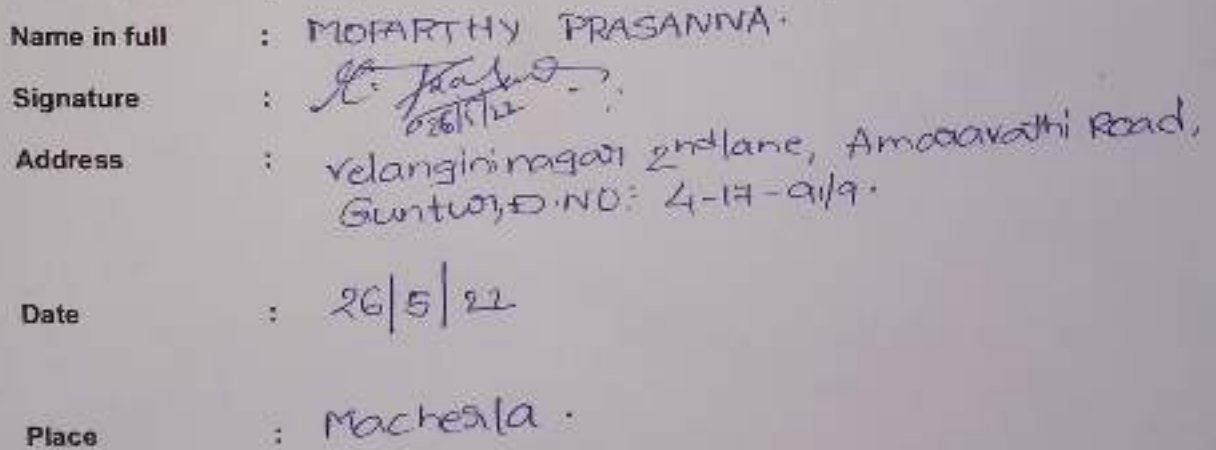 Name in full : MOPARTHY PRASANNA.
Signature : 26/5/22
Address : Velangininagar 2nd lane, Amaravathi Road,
Guntur, D.NO: 4-17-91/9.
Date : 26/5/22
Place : Macherla.